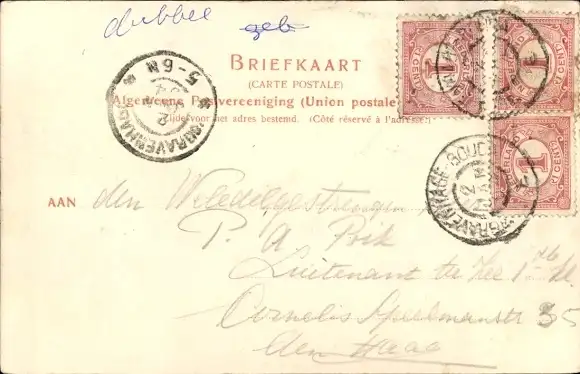 dubbel geb
BRIEFKAART
(CARTE POSTALE)
Algemeene Postvereeniging (Union postale
Zijde voor het adres bestemd. (Côté réservé à l'adresse.)
'SGRAVENHAGE
5-6N
NEDERLAND
1
CENT
'SGRAVENHAGE
AAN den Weledelgestrengen
P. A Prik
Luitenant ter Zee 1ste Kl
Cornelis Speelmanstr 35
den Haag